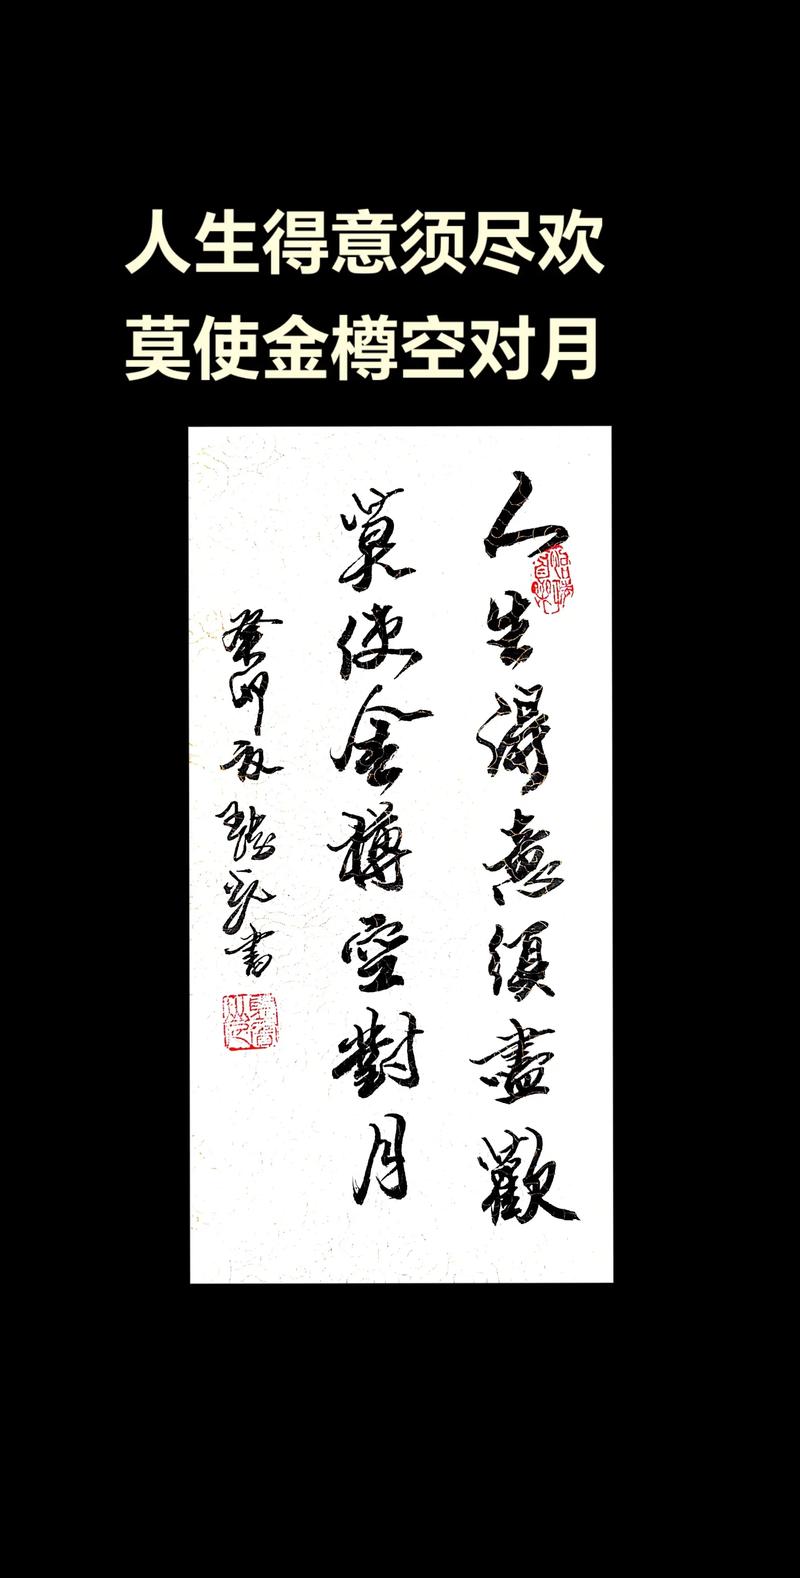 人生得意须尽欢
莫使金樽空对月
人生得意須盡歡
莫使金樽空對月
癸卯 書